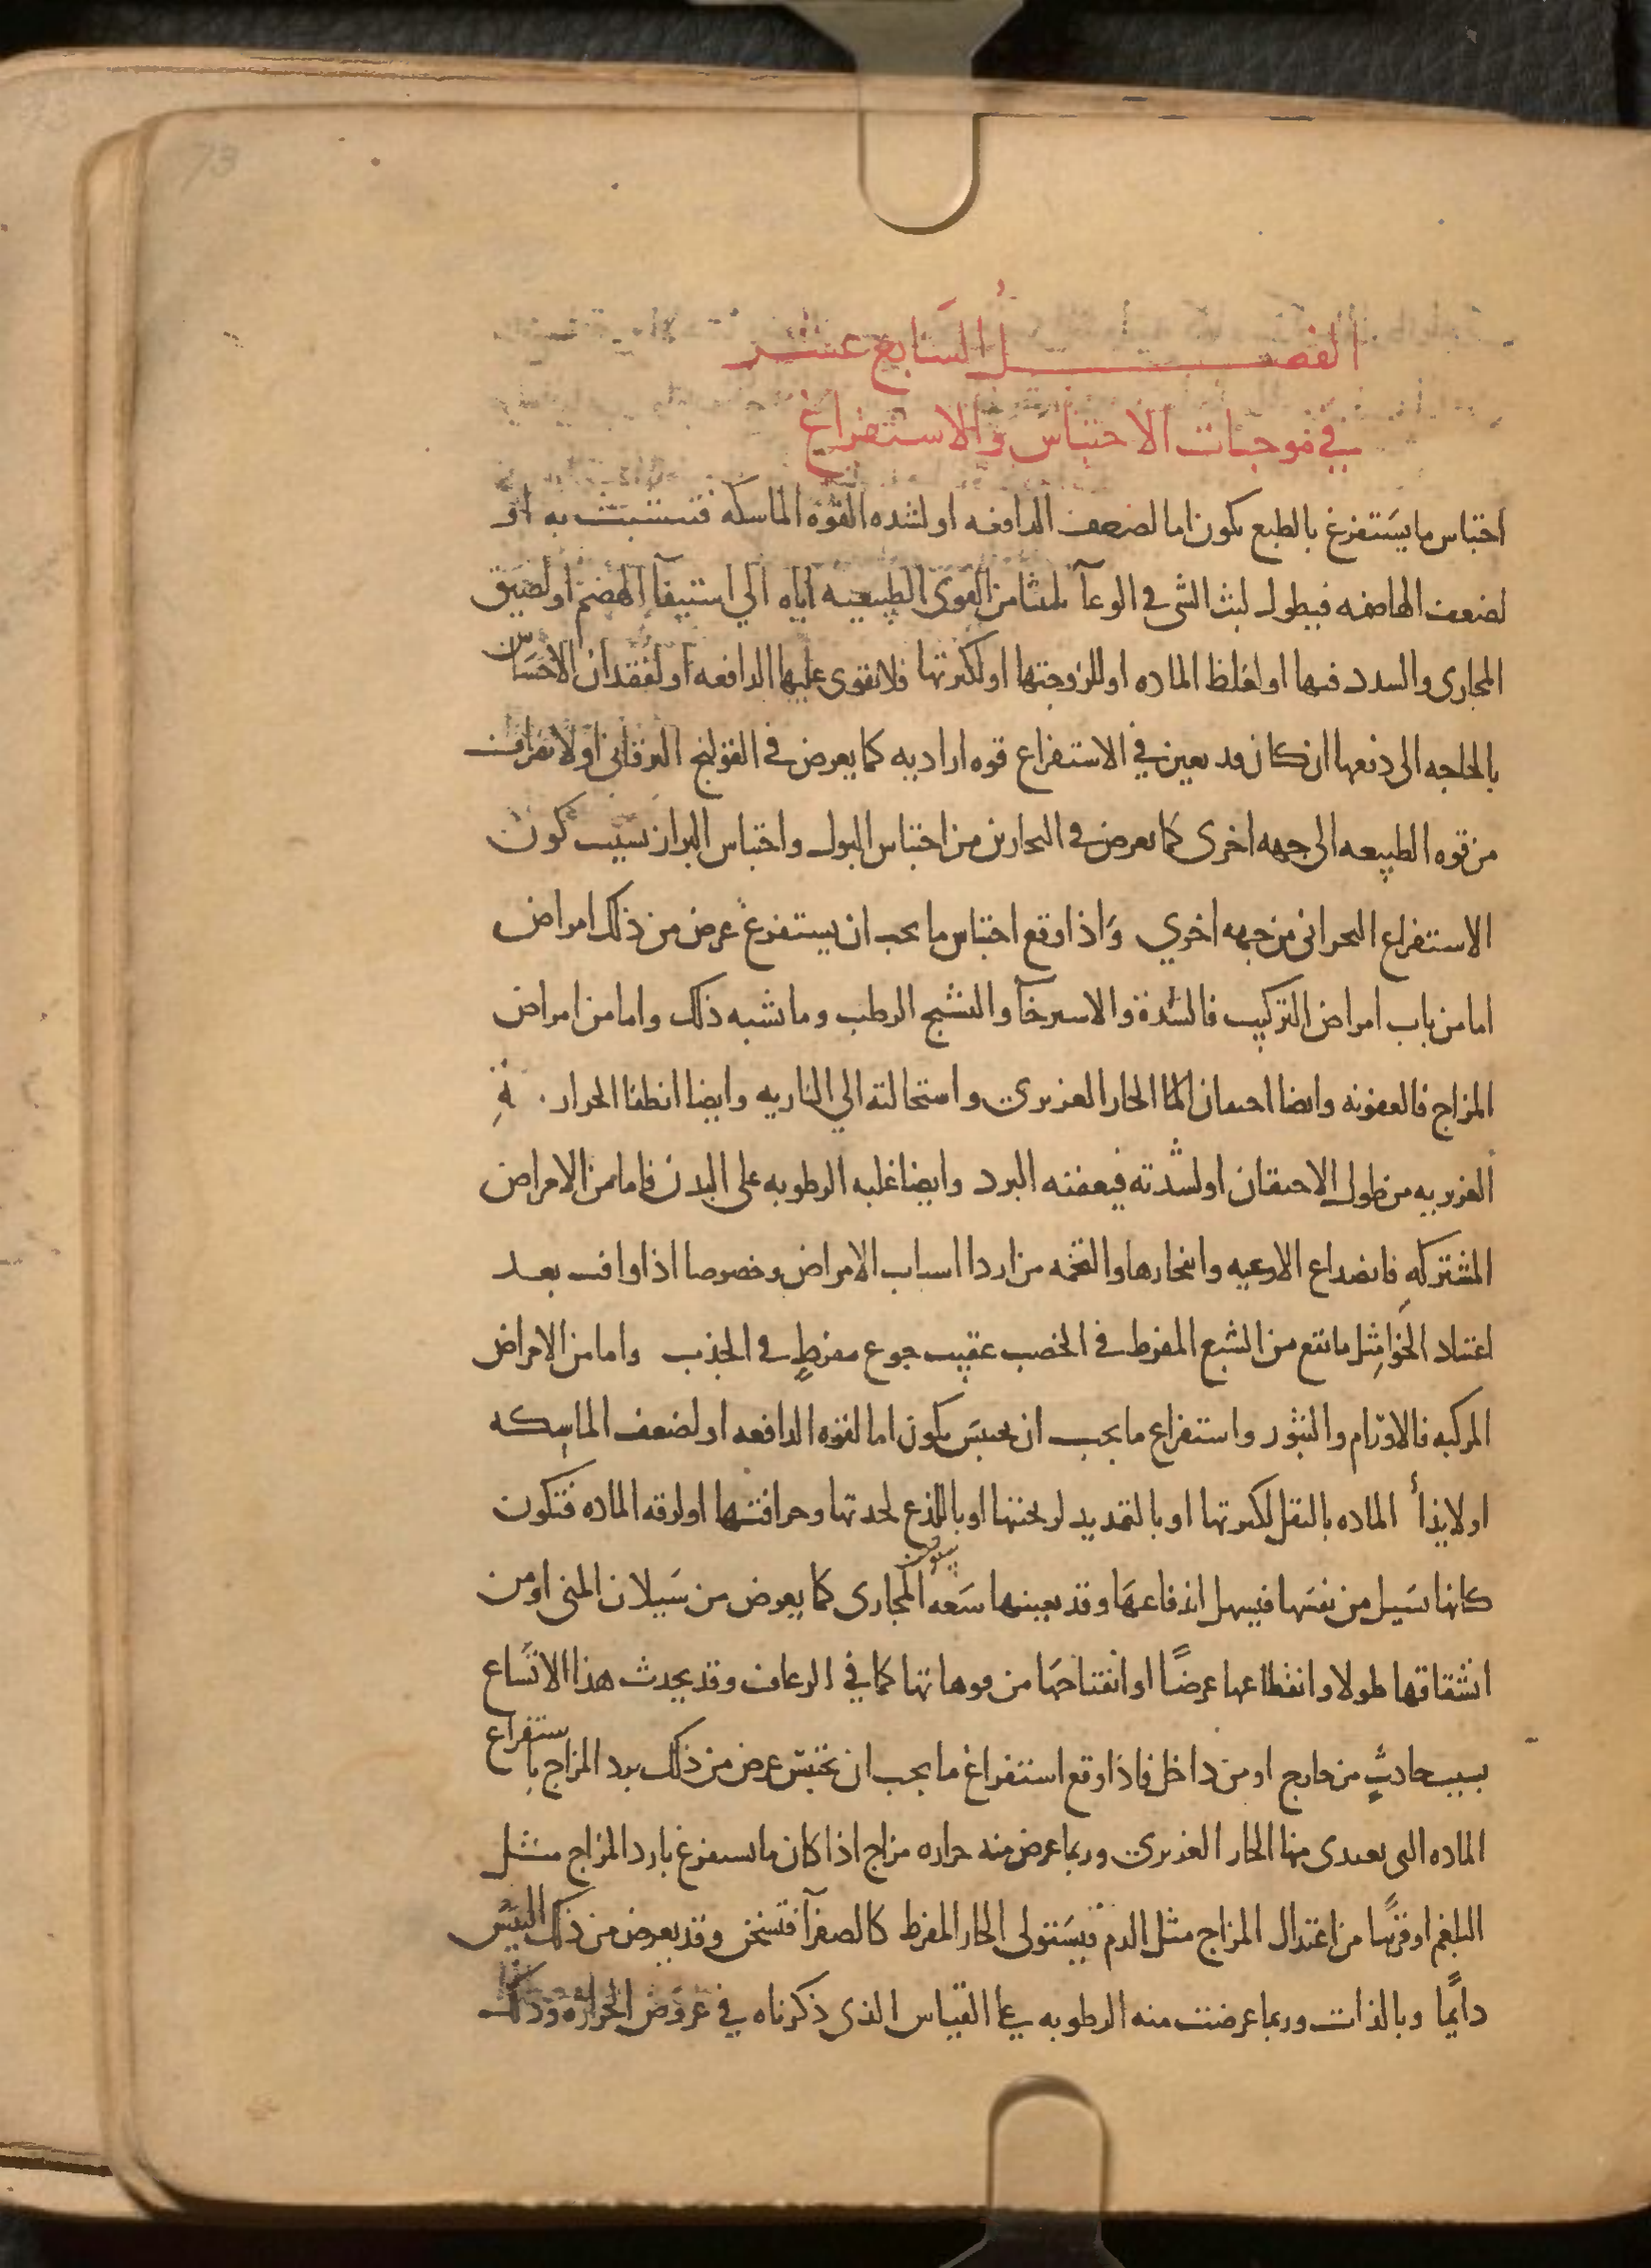 73
الفصل السابع عشر
في موجبات الاحتباس والاستفراغ
احتباس ما يستفرغ بالطبع يكون اما لضعف الدافعه او لشده القوه الماسكه فتتشبث به او
لضعف الهاضمه فيطول لبث الشى في الوعآ تلبثا من القوى الطبيعيه اياه الي استيفآ الهضم او لضيق
المجارى والسدد فيها او لغلظ الماده او للزوجتها او لكثرتها فلا تقوى عليها الدافعه او لفقدان الاحساس
بالحاجه الى دفعها ان كان قد تعين في الاستفراغ قوه اراديه كما يعرض في القولنج اليرقانى او لانصراف
من قوه الطبيعه الى جهه اخرى كما يعرض في البحارين من احتباس البول واحتباس البراز بسبب كون
الاستفراغ البحرانى من جهه اخري واذا وقع احتباس ما يجب ان يستفرغ عرض من ذلك امراض
اما من باب امراض التركيب فالسدة والاسترخآ والتشنج الرطب وما يشبه ذلك واما من امراض
المزاج فالعفونه وايضا احتقان الحار الغريزي واستحالته الي الناريه وايضا انطفا الحرارة
الغريزيه من طول الاحتقان او لشدته فيعقبه البرد وايضا غلبه الرطوبه على البدن فاما من الامراض
المشتركه فانصداع الاوعيه وانفجارها والتخمه من اردا اسباب الامراض وخصوصا اذا وافت بعد
اعتياد الخوا مثل ما يقع من الشبع المفرط في الخصب عقيب جوع مفرط في الجدب واما من الامراض
المركبه فالاورام والبثور واستفراغ ما يجب ان يحتبس يكون اما لقوه الدافعه او لضعف الماسكه
او لايذأ الماده بالثقل لكثرتها او بالتمديد لريحتها او باللذع لحدتها وحرافتها او لرقه الماده فتكون
كانها تسيل من نفسها فيسهل اندفاعها وقد يعينها سعه المجارى كما يعرض من سيلان المنى او من
انشقاقها طولا وانقطاعها عرضًا او انفتاحها من فوهاتها كما في الرعاف وقد يحدث هذا الاتساع
بسبب حادث من خارج او من داخل فاذا وقع استفراغ ما يجب ان يحتبس عرض من ذلك برد المزاج باستفراغ
الماده التى يغتدى منها الحار الغريزي وربما عرض منه حراره مزاج اذا كان ما يستفرغ بارد المزاج مثل
البلغم او قريبًا من اعتدال المزاج مثل الدم فيستولى الحار المفرط كالصفرآ فتسخن وقد يعرض من ذلك اليبس
دايمًا وبالذات وربما عرضت منه الرطوبه على القياس الذى ذكرناه في عروض الحراره وذلك